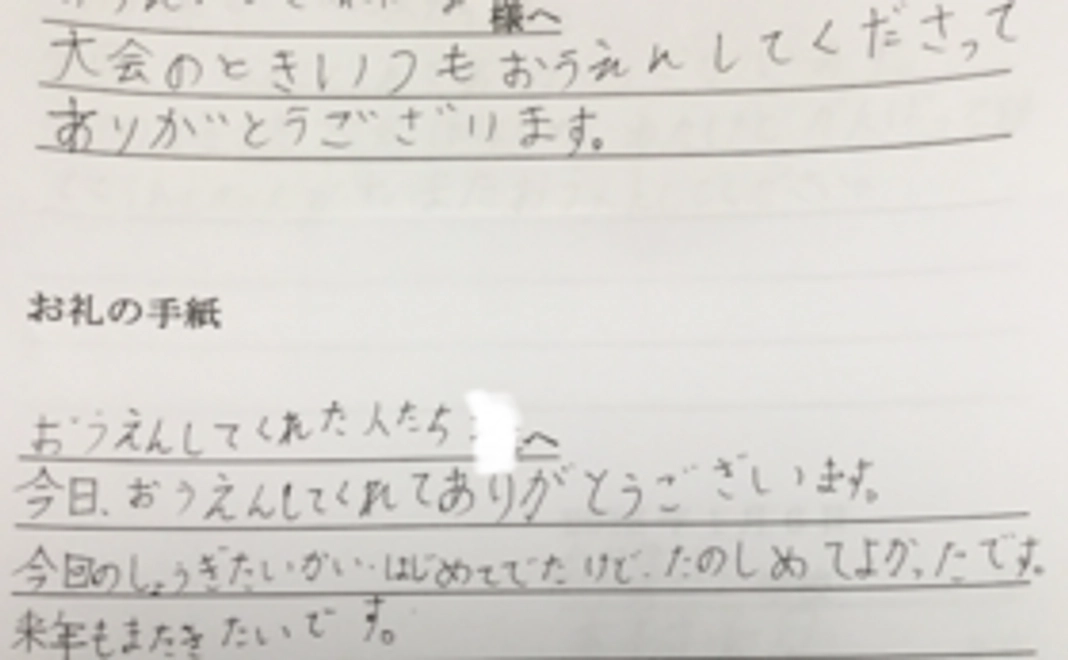 様へ
大会のときいつもおうえんしてくださって
ありがとうございます。
お礼の手紙
おうえんしてくれた人たち へ
今日、おうえんしてくれてありがとうございます。
今回のしょうぎたいかい、はじめてでたけど、たのしめてよかったです。
来年もまたきたいです。